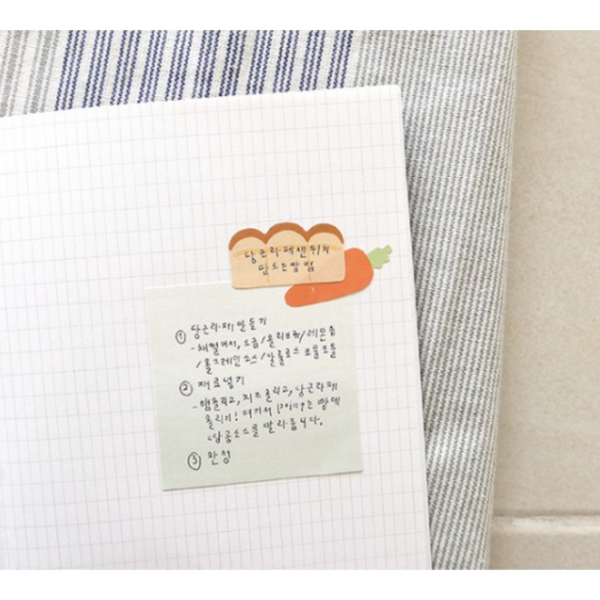 당근라페샌위치
만드는방법
① 당근라페 만들기
- 채썰어서, 소금/올리브유/레몬즙
/홀그레인소스/알룰로스 조물조물
② 재료넣기
- 햄올리고, 치즈올리고, 당근라페
올리기! 여기서 point는 빵에
땅콩소스를 발라줍니다.
③ 완성